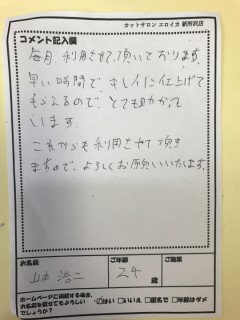 カットサロン エロイカ 新所沢店
コメント記入欄
毎月、利用させて頂いております。
早い時間で、キレイに仕上げて
もらえるので、とても助かって
います。
これからも利用させて頂き
ますので、よろしくお願いいたします。
お名前
ご年齢
ご職業
山本 浩二
24
歳
ホームページに掲載する場合、
お名前を載せてもよろしい
でしょうか?
☑はい □いいえ □匿名で □年齢はダメ